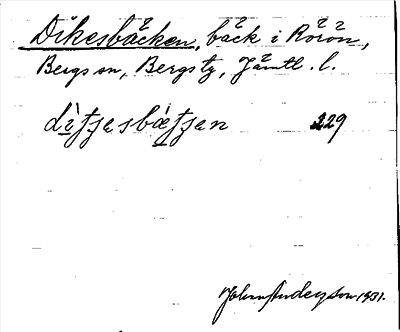 Dikesbäcken, bäck i Rörön,
Bergs sn, Bergs tg, Jämtl. l.
dìtʃesbætʃen 229
John Anderzson 1931.